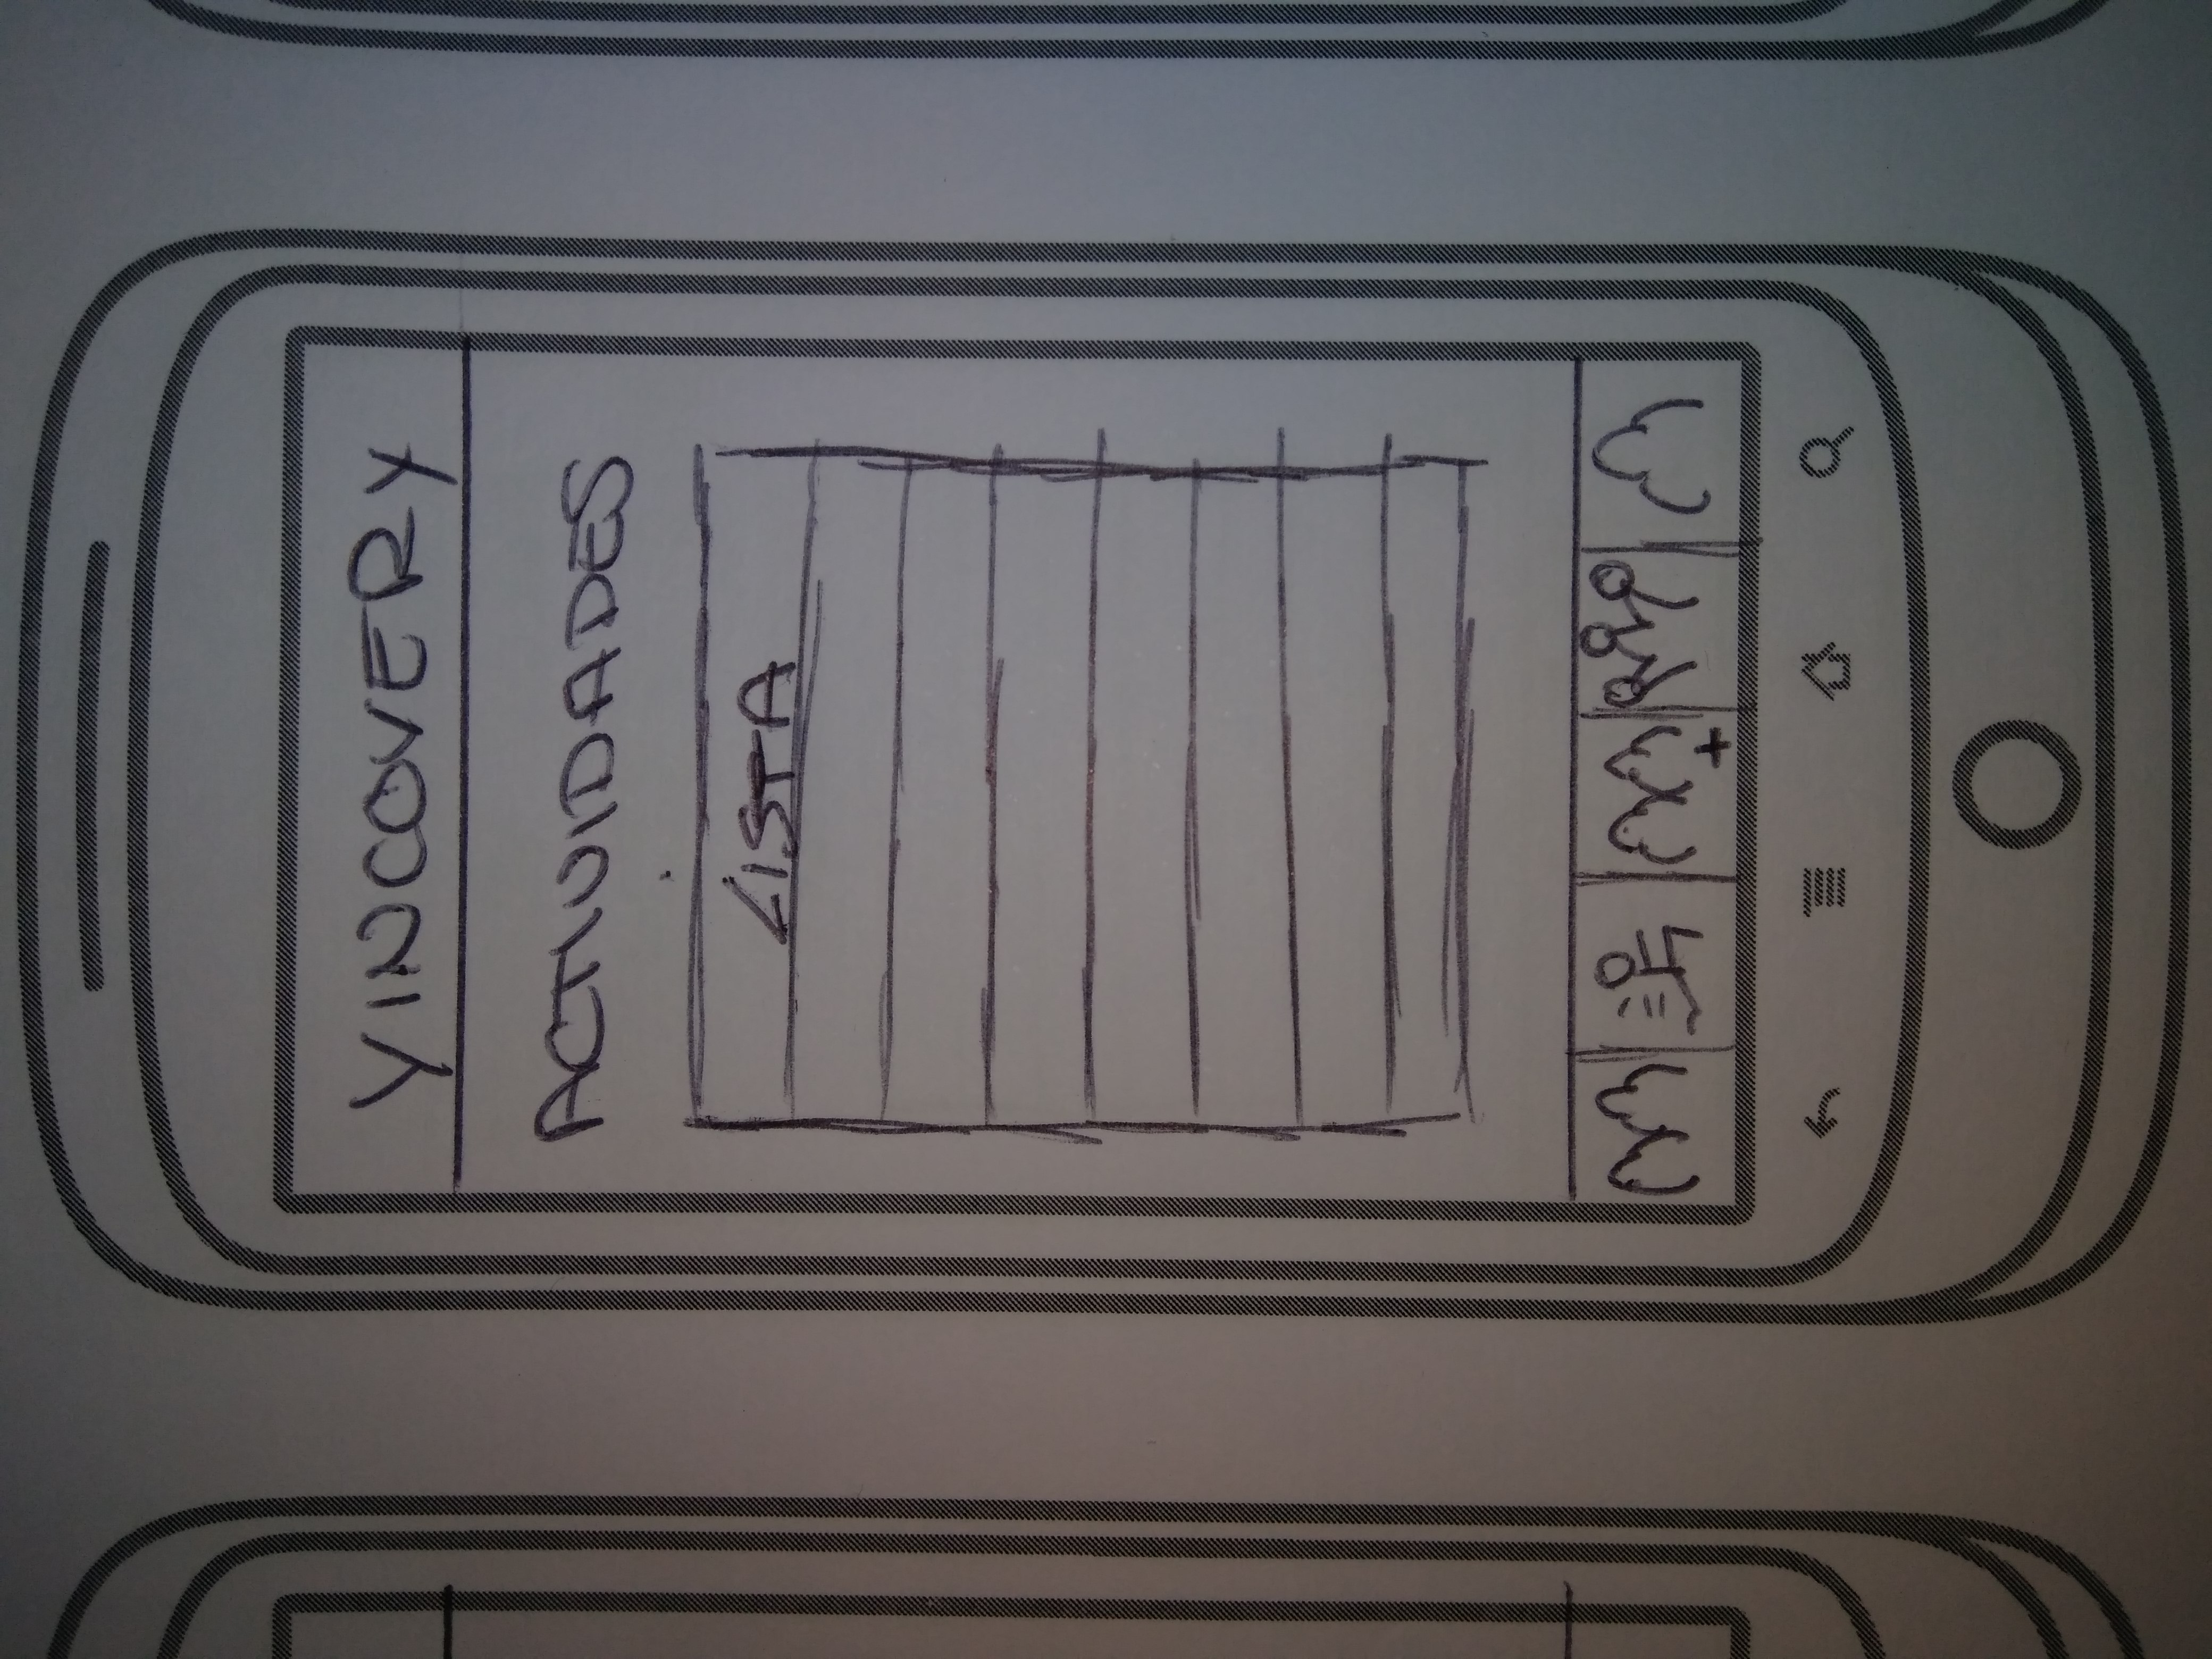 YINCOVERY
ACTIVIDADES
LISTA
+